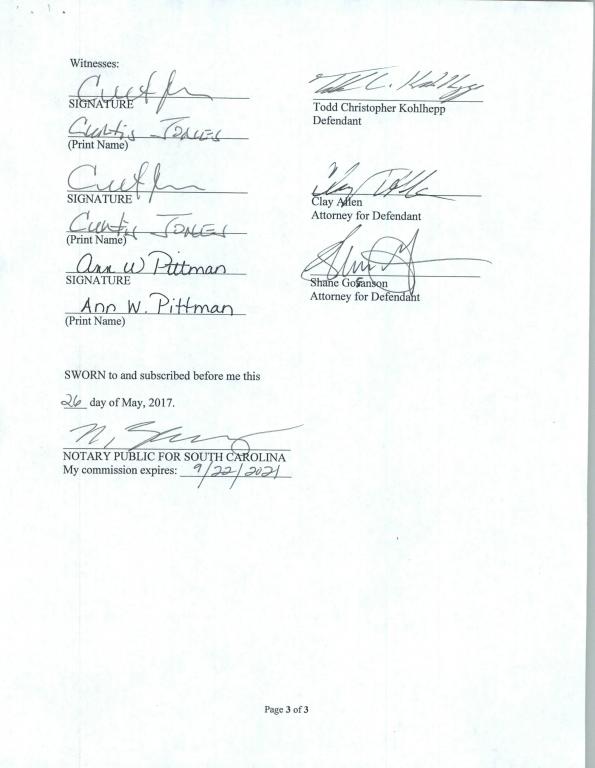 Witnesses:
SIGNATURE
Curtis Jones
(Print Name)
SIGNATURE
Curtis Jones
(Print Name)
Ann W Pittman
SIGNATURE
Ann W. Pittman
(Print Name)
Todd C. Kohlhepp
Todd Christopher Kohlhepp
Defendant
Clay Allen
Attorney for Defendant
Shane Goranson
Attorney for Defendant
SWORN to and subscribed before me this
26 day of May, 2017.
NOTARY PUBLIC FOR SOUTH CAROLINA
My commission expires: 9/22/2021
Page 3 of 3